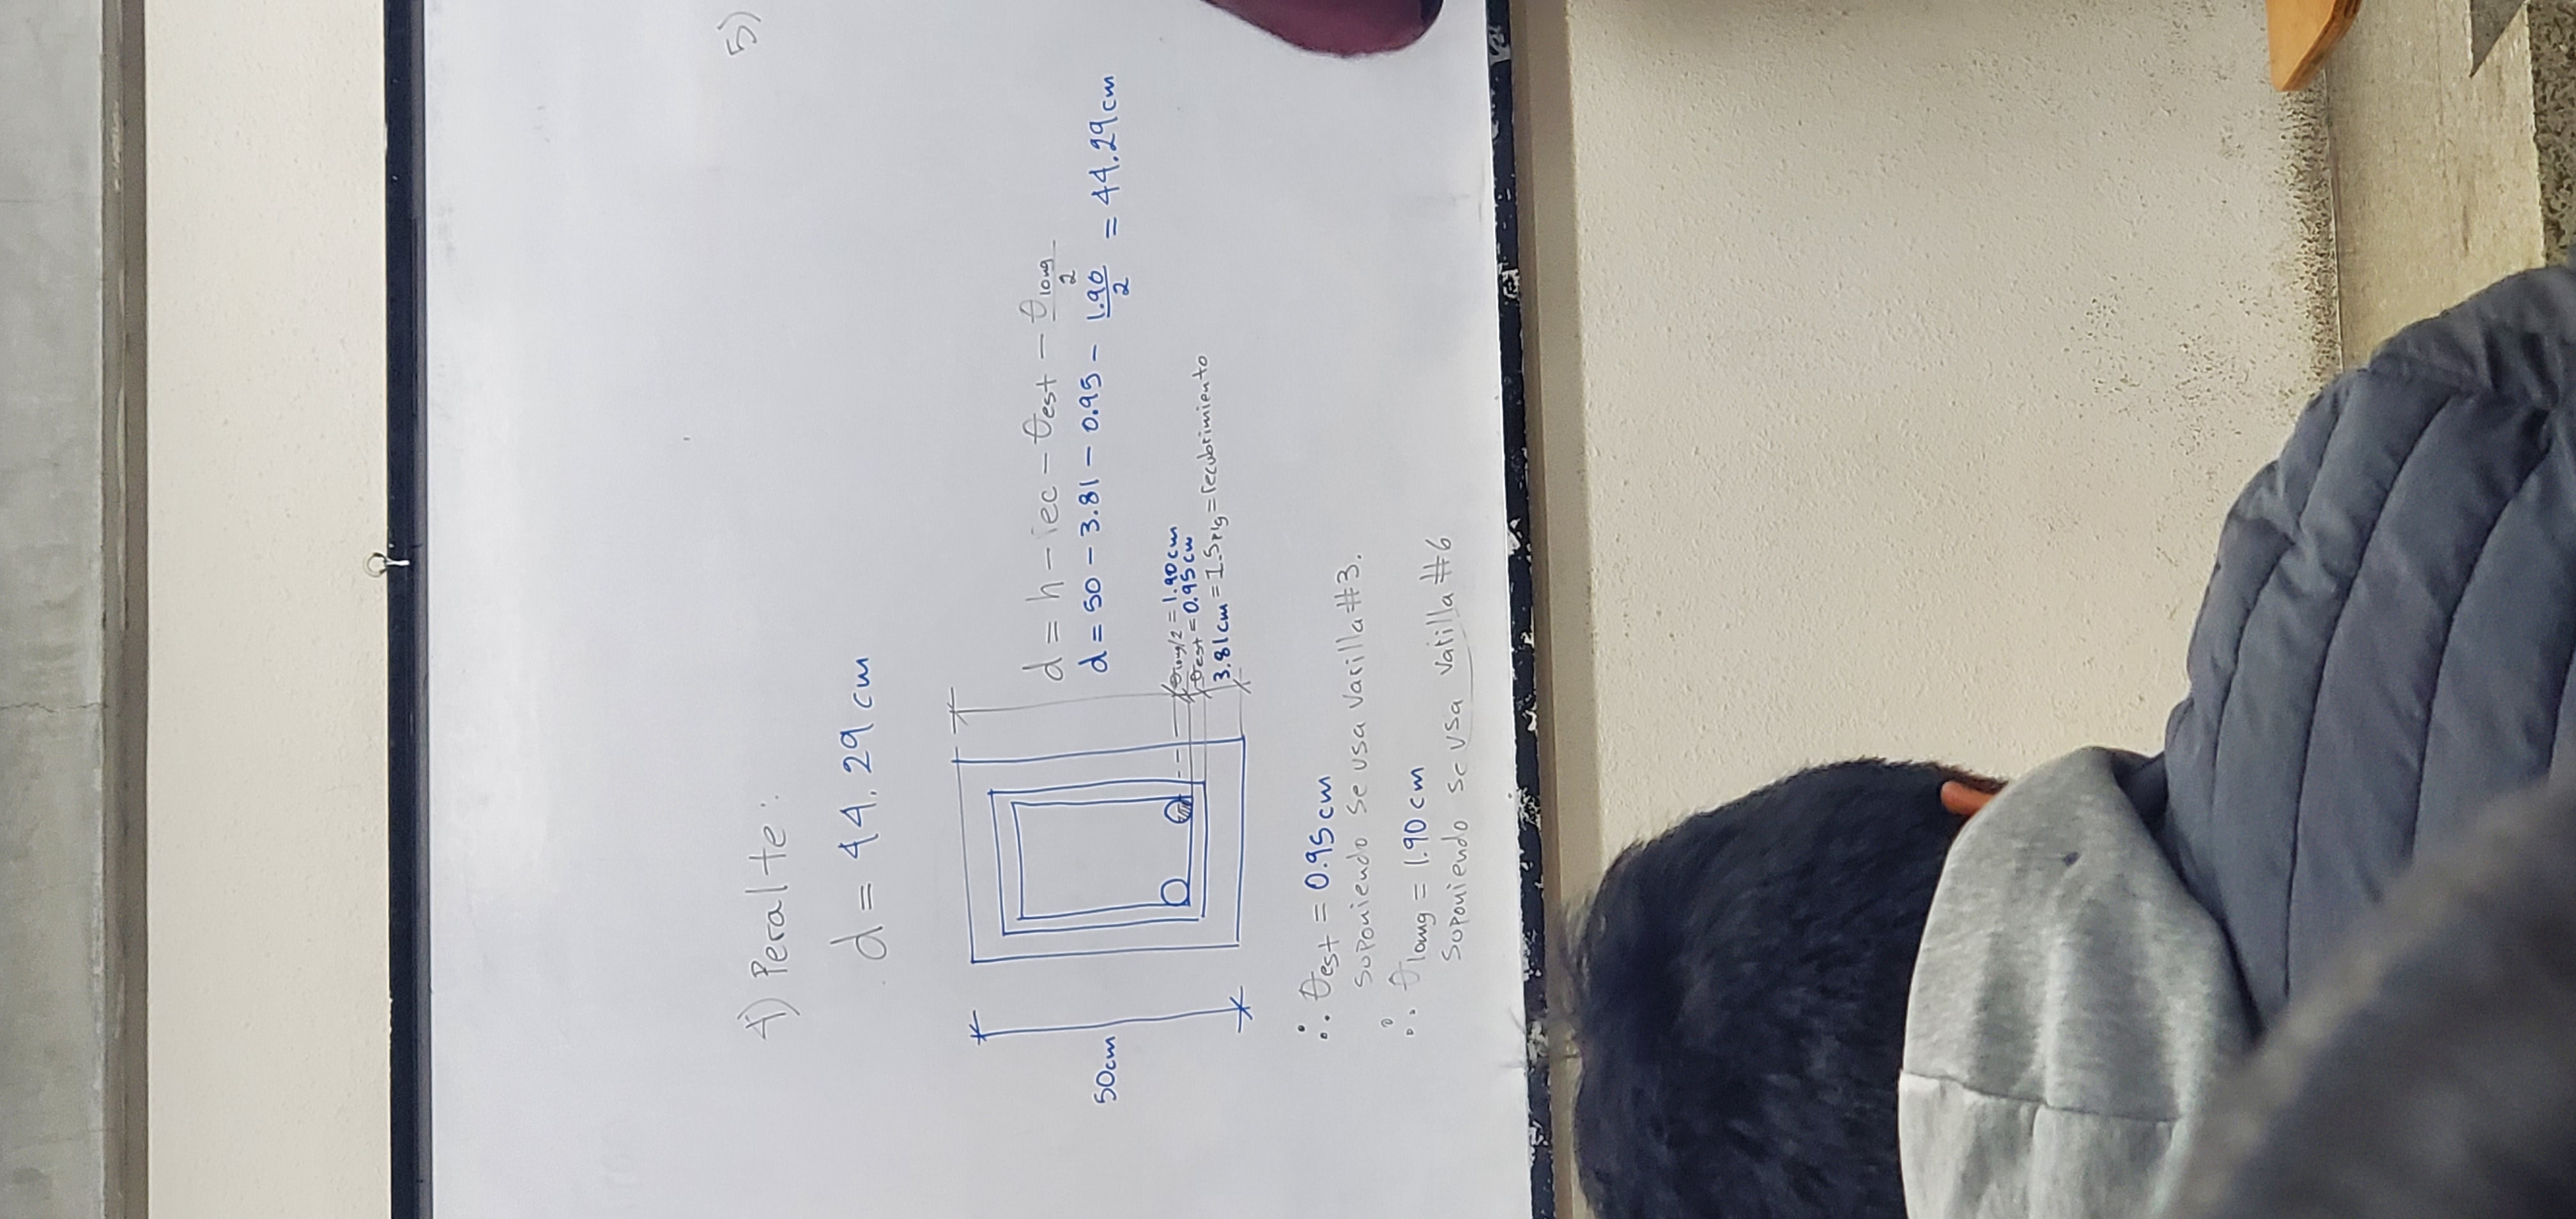 4) Peralte:
5)
d = 44.29 cm
50cm
d = h - rec - θest - θlong/2
d = 50 - 3.81 - 0.95 - 1.90/2 = 44.29cm
θlong/2 = 1.90cm
θest = 0.95cm
3.81cm = 1.5plg = recubrimiento
∴ θest = 0.95cm
Suponiendo se usa varilla #3.
∴ θlong = 1.90 cm
Suponiendo se usa varilla #6